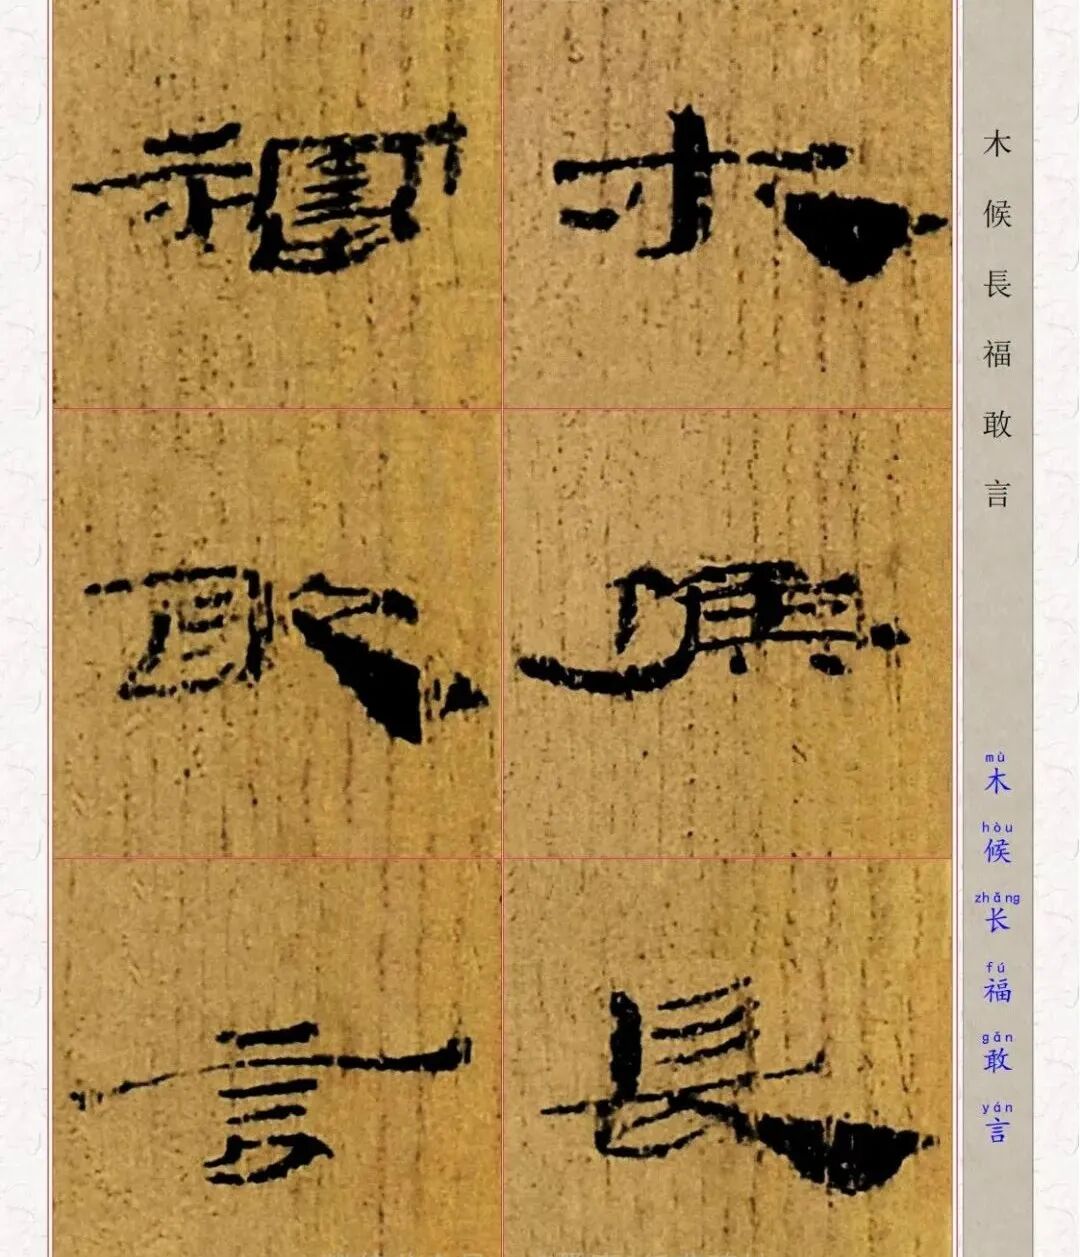 木候長福敢言
mù hòu zhǎng fú gǎn yán
木候长福敢言
木候長
福敢言